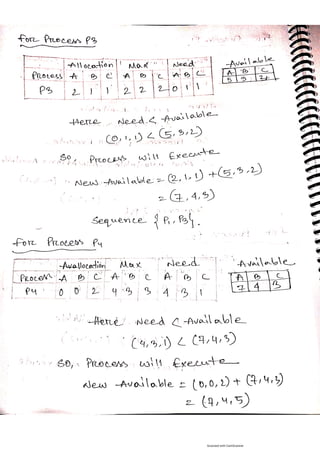 For Process P3
Allocation Max Need Available
Process A B C A B C A B C A B C
P3 2 1 1 2 2 2 0 1 1 5 3 2
Here Need < Available
(0,1,1) < (5,3,2)
So, Process will Execute
New Available = (2,1,1) + (5,3,2)
= (7,4,3)
Sequence {P1, P3}.
For Process P4
Allocation Max Need Available
Process A B C A B C A B C A B C
P4 0 0 2 4 3 3 4 3 1 7 4 3
Here Need < Available
(4,3,1) < (7,4,3)
So, Process will Execute
New Available = (0,0,2) + (7,4,3)
= (7,4,5)
Scanned with CamScanner